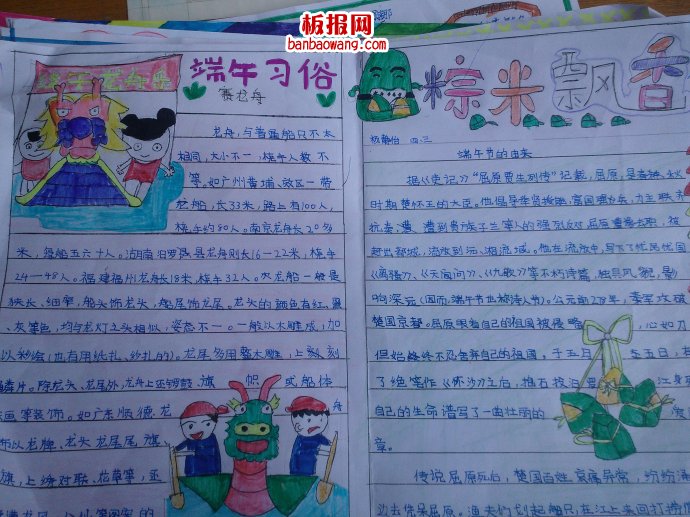 板报网
banbaowang.com
端午习俗
赛龙舟
龙舟,与普通船只不太
相同,大小不一,桡手人数不
等。如广州黄埔、郊区一带
龙船,长33米,路上有100人,
桡手约80人。南京龙舟长20多
米,每船五六十人。湖南汨罗县龙舟则长16—22米,桡手
24—48人。福建福州龙舟长18米,桡手32人。龙船一般是
狭长、细窄,船头饰龙头,船尾饰龙尾。龙头的颜色有红、黑
、灰等色,均与龙灯之头相似,姿态不一。一般以木雕成,加
以彩绘(也有用纸扎、纱扎的)。龙尾多用整木雕,上刻
鳞片。除龙头、龙尾外,龙舟上还有锣鼓、旗帜或船体
画等装饰。如广东顺德龙舟
饰以龙牌、龙头龙尾旗、
旗,上绣对联、花草等,还
粽米飘香
四.三
端午节的由来
据《史记》“屈原贾生列传”记载,屈原,是春秋
时期楚怀王的大臣。他倡导举贤授能,富国强兵,力主联齐
抗秦,遭到贵族子兰等人的强烈反对,屈原遭馋去职,被
赶出都城,流放到沅、湘流域。他在流放中,写下了忧民忧国
《离骚》、《天问》、《九歌》等不朽诗篇,独具风貌,影
响深远(因而,端午节也称诗人节)。公元前278年,秦军攻破
楚国京都。屈原眼看自己的祖国被侵略,心如刀
但始终不忍舍弃自己的祖国,于五月五日,在
了绝笔作《怀沙》之后,抱石投汨江身死
自己的生命谱写了一曲壮丽的爱
章。
传说屈原死后,楚国百姓哀痛异常,纷纷涌
边去凭吊屈原。渔夫们划起船只,在江上来回打捞